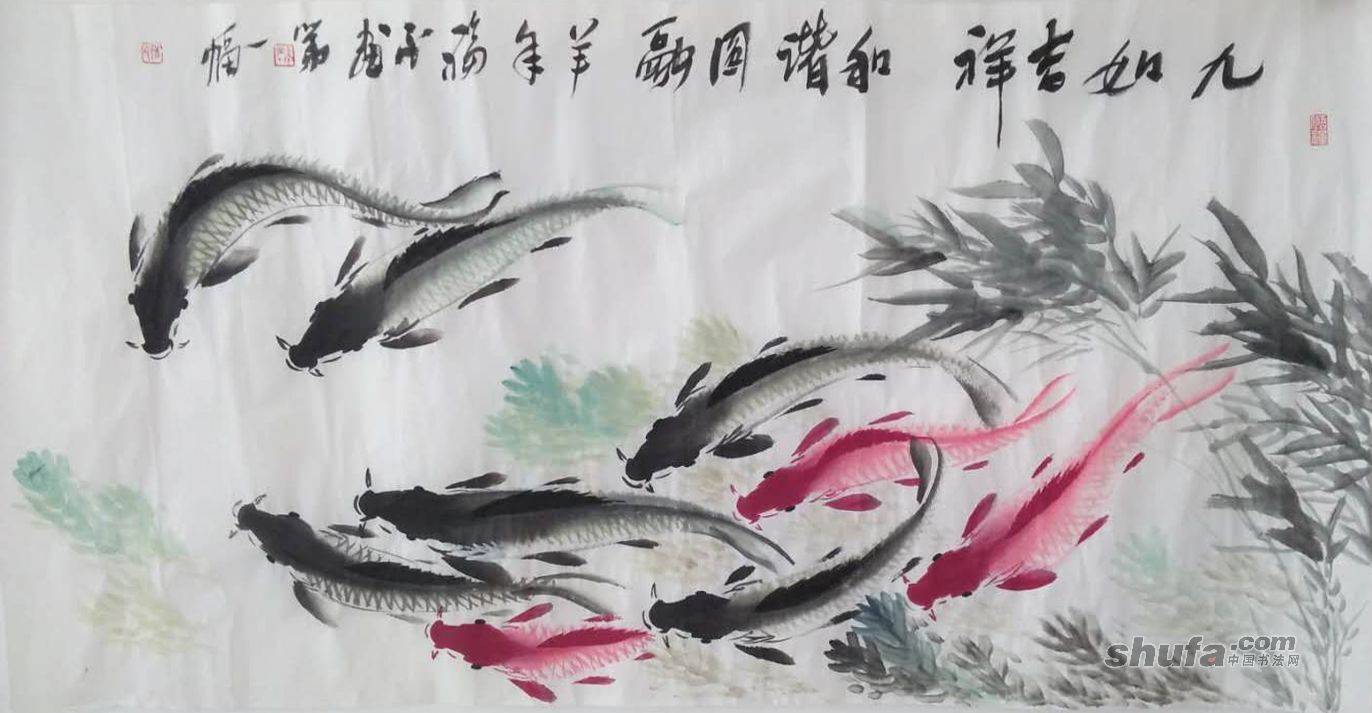 九如吉祥 和谐圆融 羊年福
画第一幅
shufa.com
中国书法网